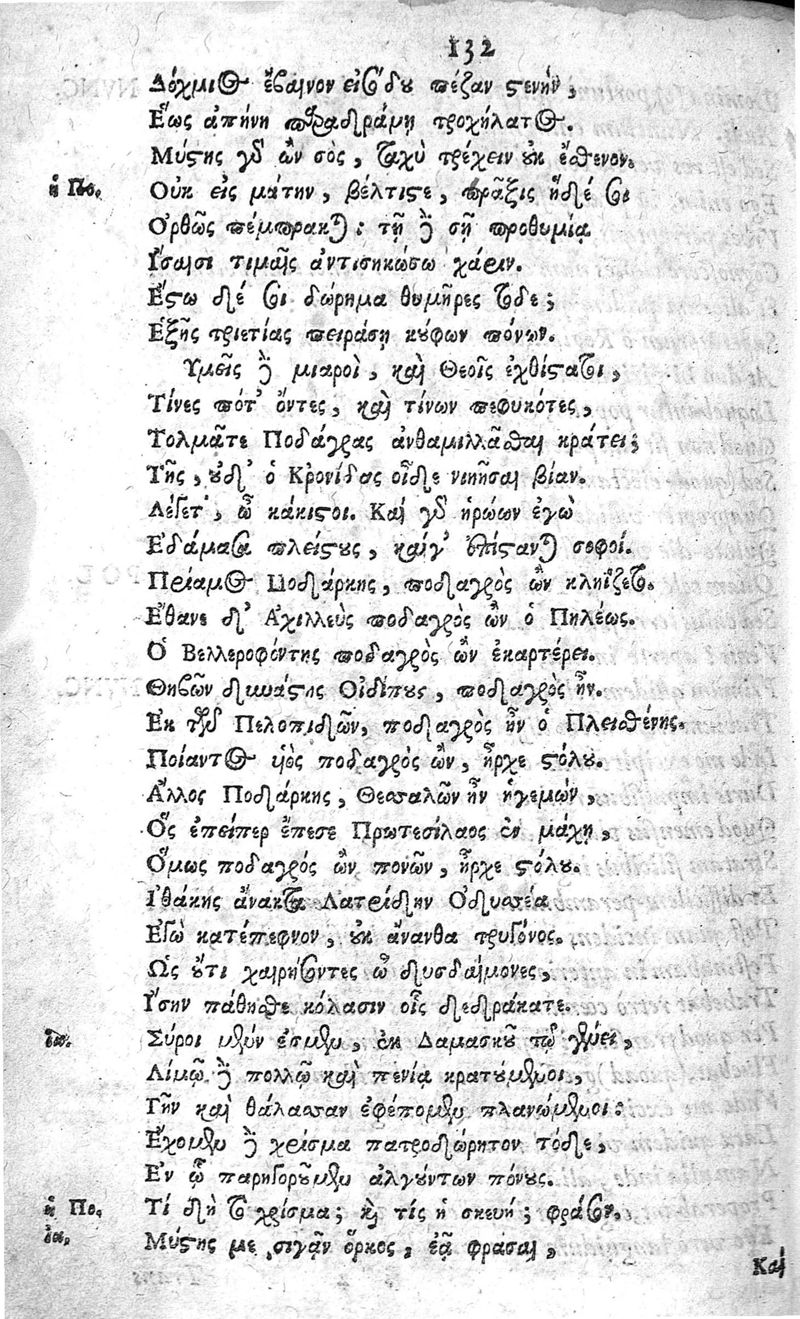 132
Δόχμιος ἔβαινον εἰσιδὼν πέζαν στενήν,
Ἕως ἀπήνη παραδράμῃ τροχήλατος.
Μύστης γὰρ ὢν σὸς, ταχὺ τρέχειν οὐκ ἔσθενον.
ἡ Πο. Οὐκ εἰς μάτην, βέλτιστε, πρᾶξις ἥδε σοι
Ὀρθῶς πέπρακται: τῇ δὲ σῇ προθυμίᾳ
Ἴσαισι τιμαῖς ἀντισηκώσω χάριν.
Ἔστω δέ σοι δώρημα θυμῆρες τόδε;
Ἑξῆς τριετίας πειράσῃ κούφων πόνων.
Ὑμεῖς δὲ μιαροὶ, καὶ Θεοῖς ἐχθίστατοι,
Τίνες πότ' ὄντες, καὶ τίνων πεφυκότες,
Τολμᾶτε Ποδάγρας ἀνθαμιλλᾶσθαι κράτει;
Τῆς, οὐδ' ὁ Κρονίδας οἶδε νικῆσαι βίαν.
Λέγετ', ὦ κάκιστοι. Καὶ γὰρ ἡρώων ἐγὼ
Ἐδάμασα πλείστους, καίγ' ἐπίστανται σοφοί.
Πρίαμος Ποδάρκης, ποδαγρὸς ὢν κληΐζετο.
Ἔθανε δ' Ἀχιλλεὺς ποδαγρὸς ὢν ὁ Πηλέως.
Ὁ Βελλεροφόντης ποδαγρὸς ὢν ἐκαρτέρει.
Θηβῶν δυνάστης Οἰδίπους, ποδαγρὸς ἦν.
Ἐκ τῶν Πελοπιδῶν, ποδαγρὸς ἦν ὁ Πλεισθένης.
Ποίαντος υἱὸς ποδαγρὸς ὢν, ἦρχε στόλου.
Ἄλλος Ποδάρκης, Θεσσαλῶν ἦν ἡγεμών,
Ὃς ἐπείπερ ἔπεσε Πρωτεσίλαος ἐν μάχῃ,
Ὅμως ποδαγρός ὢν πονῶν, ἦρχε στόλου.
Ἰθάκης ἄνακτα Λαερτιάδην Ὀδυσσέα
Ἐγὼ κατέπεφνον, οὐκ ἄκανθα τρυγόνος.
Ὡς οὔτι χαιρήσοντες ὦ δυσδαίμονες,
Ἴσην πάθησθε κόλασιν οἷς δεδράκατε.
ἰα. Σύροι μὲν ἐσμὲν, ἐκ Δαμασκοῦ τῷ γένει,
Λιμῷ δὲ πολλῷ καὶ πενίᾳ κρατούμενοι,
Γῆν καὶ θάλασσαν ἐφέπομεν πλανώμενοι:
Ἔχομεν δὲ χρίσμα πατροδώρητον τόδε,
Ἐν ᾧ παρηγοροῦμεν ἀλγούντων πόνους.
ἡ Πο. Τί δὴ τὸ χρίσμα; καὶ τίς ἡ σκευή; φράσον.
ἰα. Μύστης με σιγᾶν ὅρκος, ἐᾷ φράσαι,
Καὶ